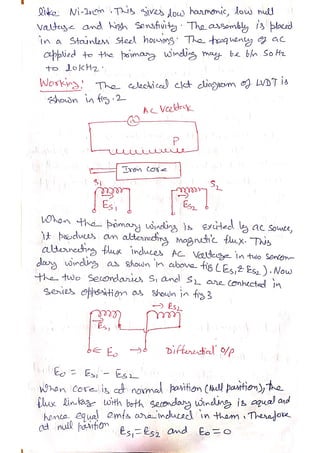 like Ni-Iron. This gives low harmonic, low null
voltage and high Sensitivity. The assembly is placed
in a Stainless Steel housing. The frequency of ac
applied to the primary winding may be b/n 50Hz
to 20kHz.
Working: The electrical ckt diagram of LVDT is
shown in fig.2
AC Voltage
P
Iron core
S1 S2
ES1 ES2
When the primary winding is excited by ac source,
it produces an alternating magnetic flux. This
alternating flux induces AC voltage in two secon-
dary winding as shown in above fig (ES1 & ES2). Now
the two secondaries S1 and S2 are connected in
series opposition as shown in fig 3
ES2
ES1
E0 Differential o/p
E0 = ES1 - ES2
When core is at normal position (Null position), the
flux linkage with both secondary winding is equal and
hence equal emfs are induced in them. Therefore
at null position ES1 = ES2 and E0 = 0